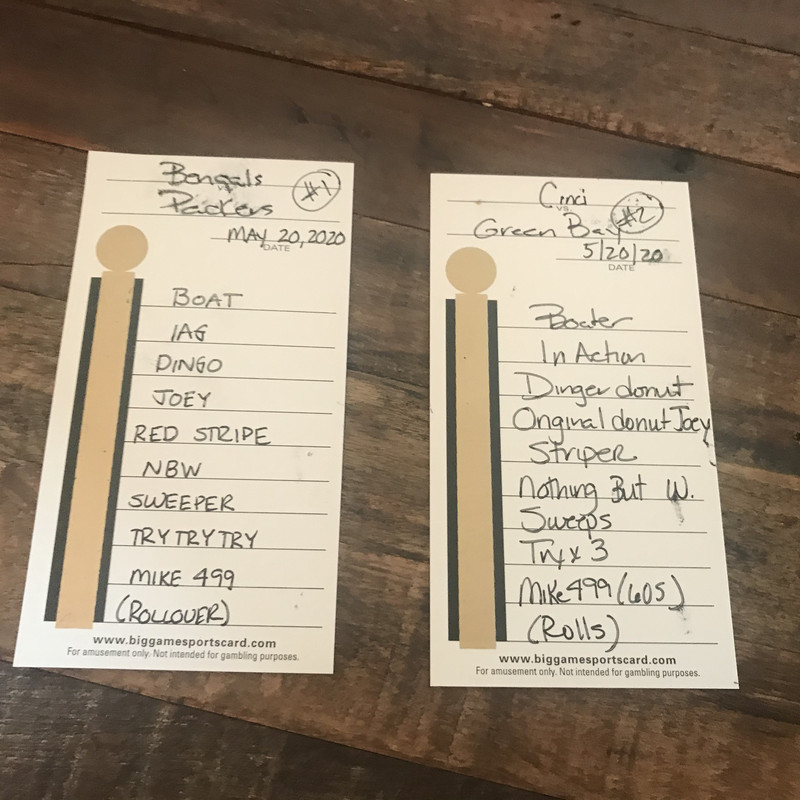 Bengals #1
vs
Packers
MAY 20, 2020
DATE
BOAT
IAG
DINGO
JOEY
RED STRIPE
NBW
SWEEPER
TRY TRY TRY
MIKE 499
(ROLLOVER)
www.biggamesportscard.com
For amusement only. Not intended for gambling purposes.
Cinci
VS. #2
Green Bay
5/20/20
DATE
Boater
In Action
Dinger donut
Original donut Joey
Striper
Nothing But W.
Sweeps
Try x 3
Mike 499 (605)
(Rolls)
www.biggamesportscard.com
For amusement only. Not intended for gambling purposes.